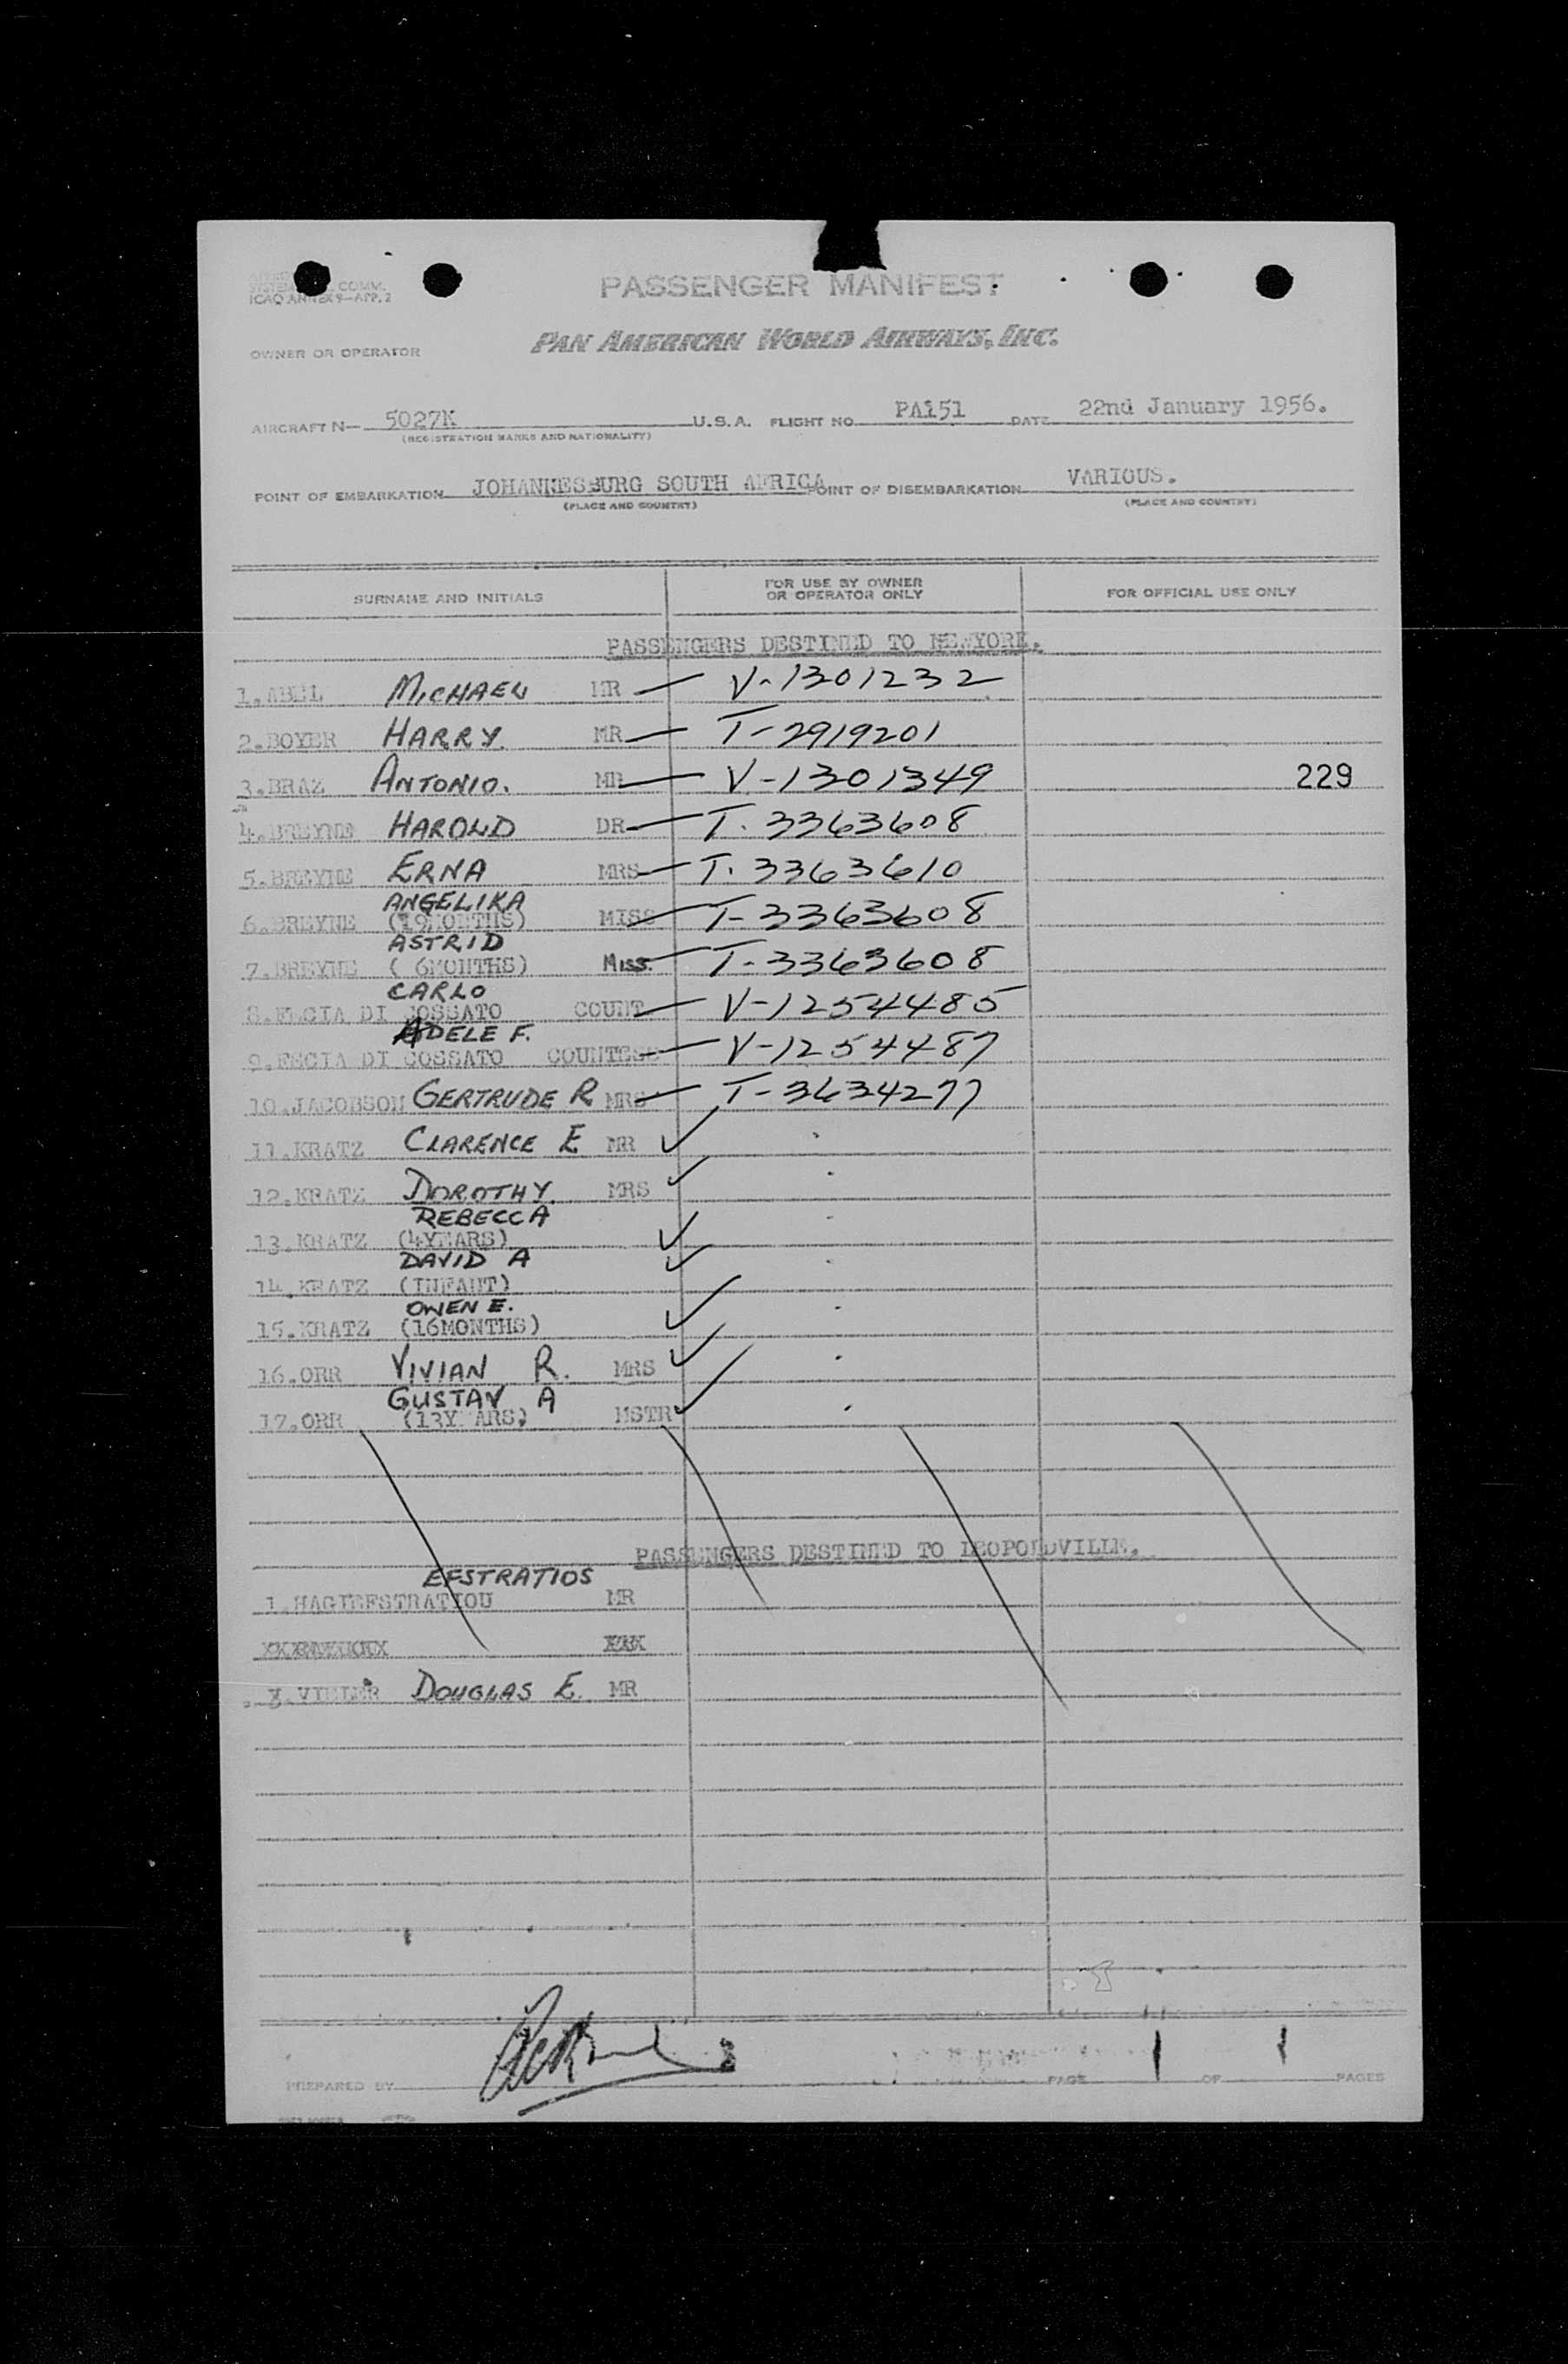 COMM.
ICAO ANNEX 9—APP. 2
PASSENGER MANIFEST
OWNER OR OPERATOR PAN AMERICAN WORLD AIRWAYS, INC.
AIRCRAFT N— 5027K U.S.A. FLIGHT NO. PA151 DATE 22nd January 1956.
(REGISTRATION MARKS AND NATIONALITY)
POINT OF EMBARKATION JOHANNESBURG SOUTH AFRICA POINT OF DISEMBARKATION VARIOUS.
(PLACE AND COUNTRY) (PLACE AND COUNTRY)
SURNAME AND INITIALS FOR USE BY OWNER OR OPERATOR ONLY FOR OFFICIAL USE ONLY
PASSENGERS DESTINED TO NEWYORK.
1.ABEL MICHAEL MR V-1301232
2.BOYER HARRY. MR T-2919201
3.BRAZ ANTONIO. MR V-1301349 229
4.BREYNE HAROLD DR T. 3363608
5.BREYNE ERNA MRS T. 3363610
ANGELIKA
6.BREYNE (19MONTHS) MISS T-3363608
ASTRID
7.BREYNE ( 6MONTHS) MISS. T-3363608
CARLO
8.FECIA DI COSSATO COUNT V-1254485
ADELE F.
9.FECIA DI COSSATO COUNTESS V-1254487
10.JACOBSON GERTRUDE R MRS T-3634277
11.KRATZ CLARENCE E MR ✓
12.KRATZ DOROTHY. MRS ✓
REBECCA
13.KRATZ (4YEARS) ✓
DAVID A
14.KRATZ (INFANT) ✓
OWEN E.
15.KRATZ (16MONTHS) ✓
16.ORR VIVIAN R. MRS ✓
GUSTAV A
17.ORR (13YEARS) MSTR ✓
PASSENGERS DESTINED TO LEOPOLDVILLE.
EFSTRATIOS
1.HAGIEFSTRATIOU MR
DOUGLAS E. MR
PREPARED BY PAGE 1 OF 1 PAGES